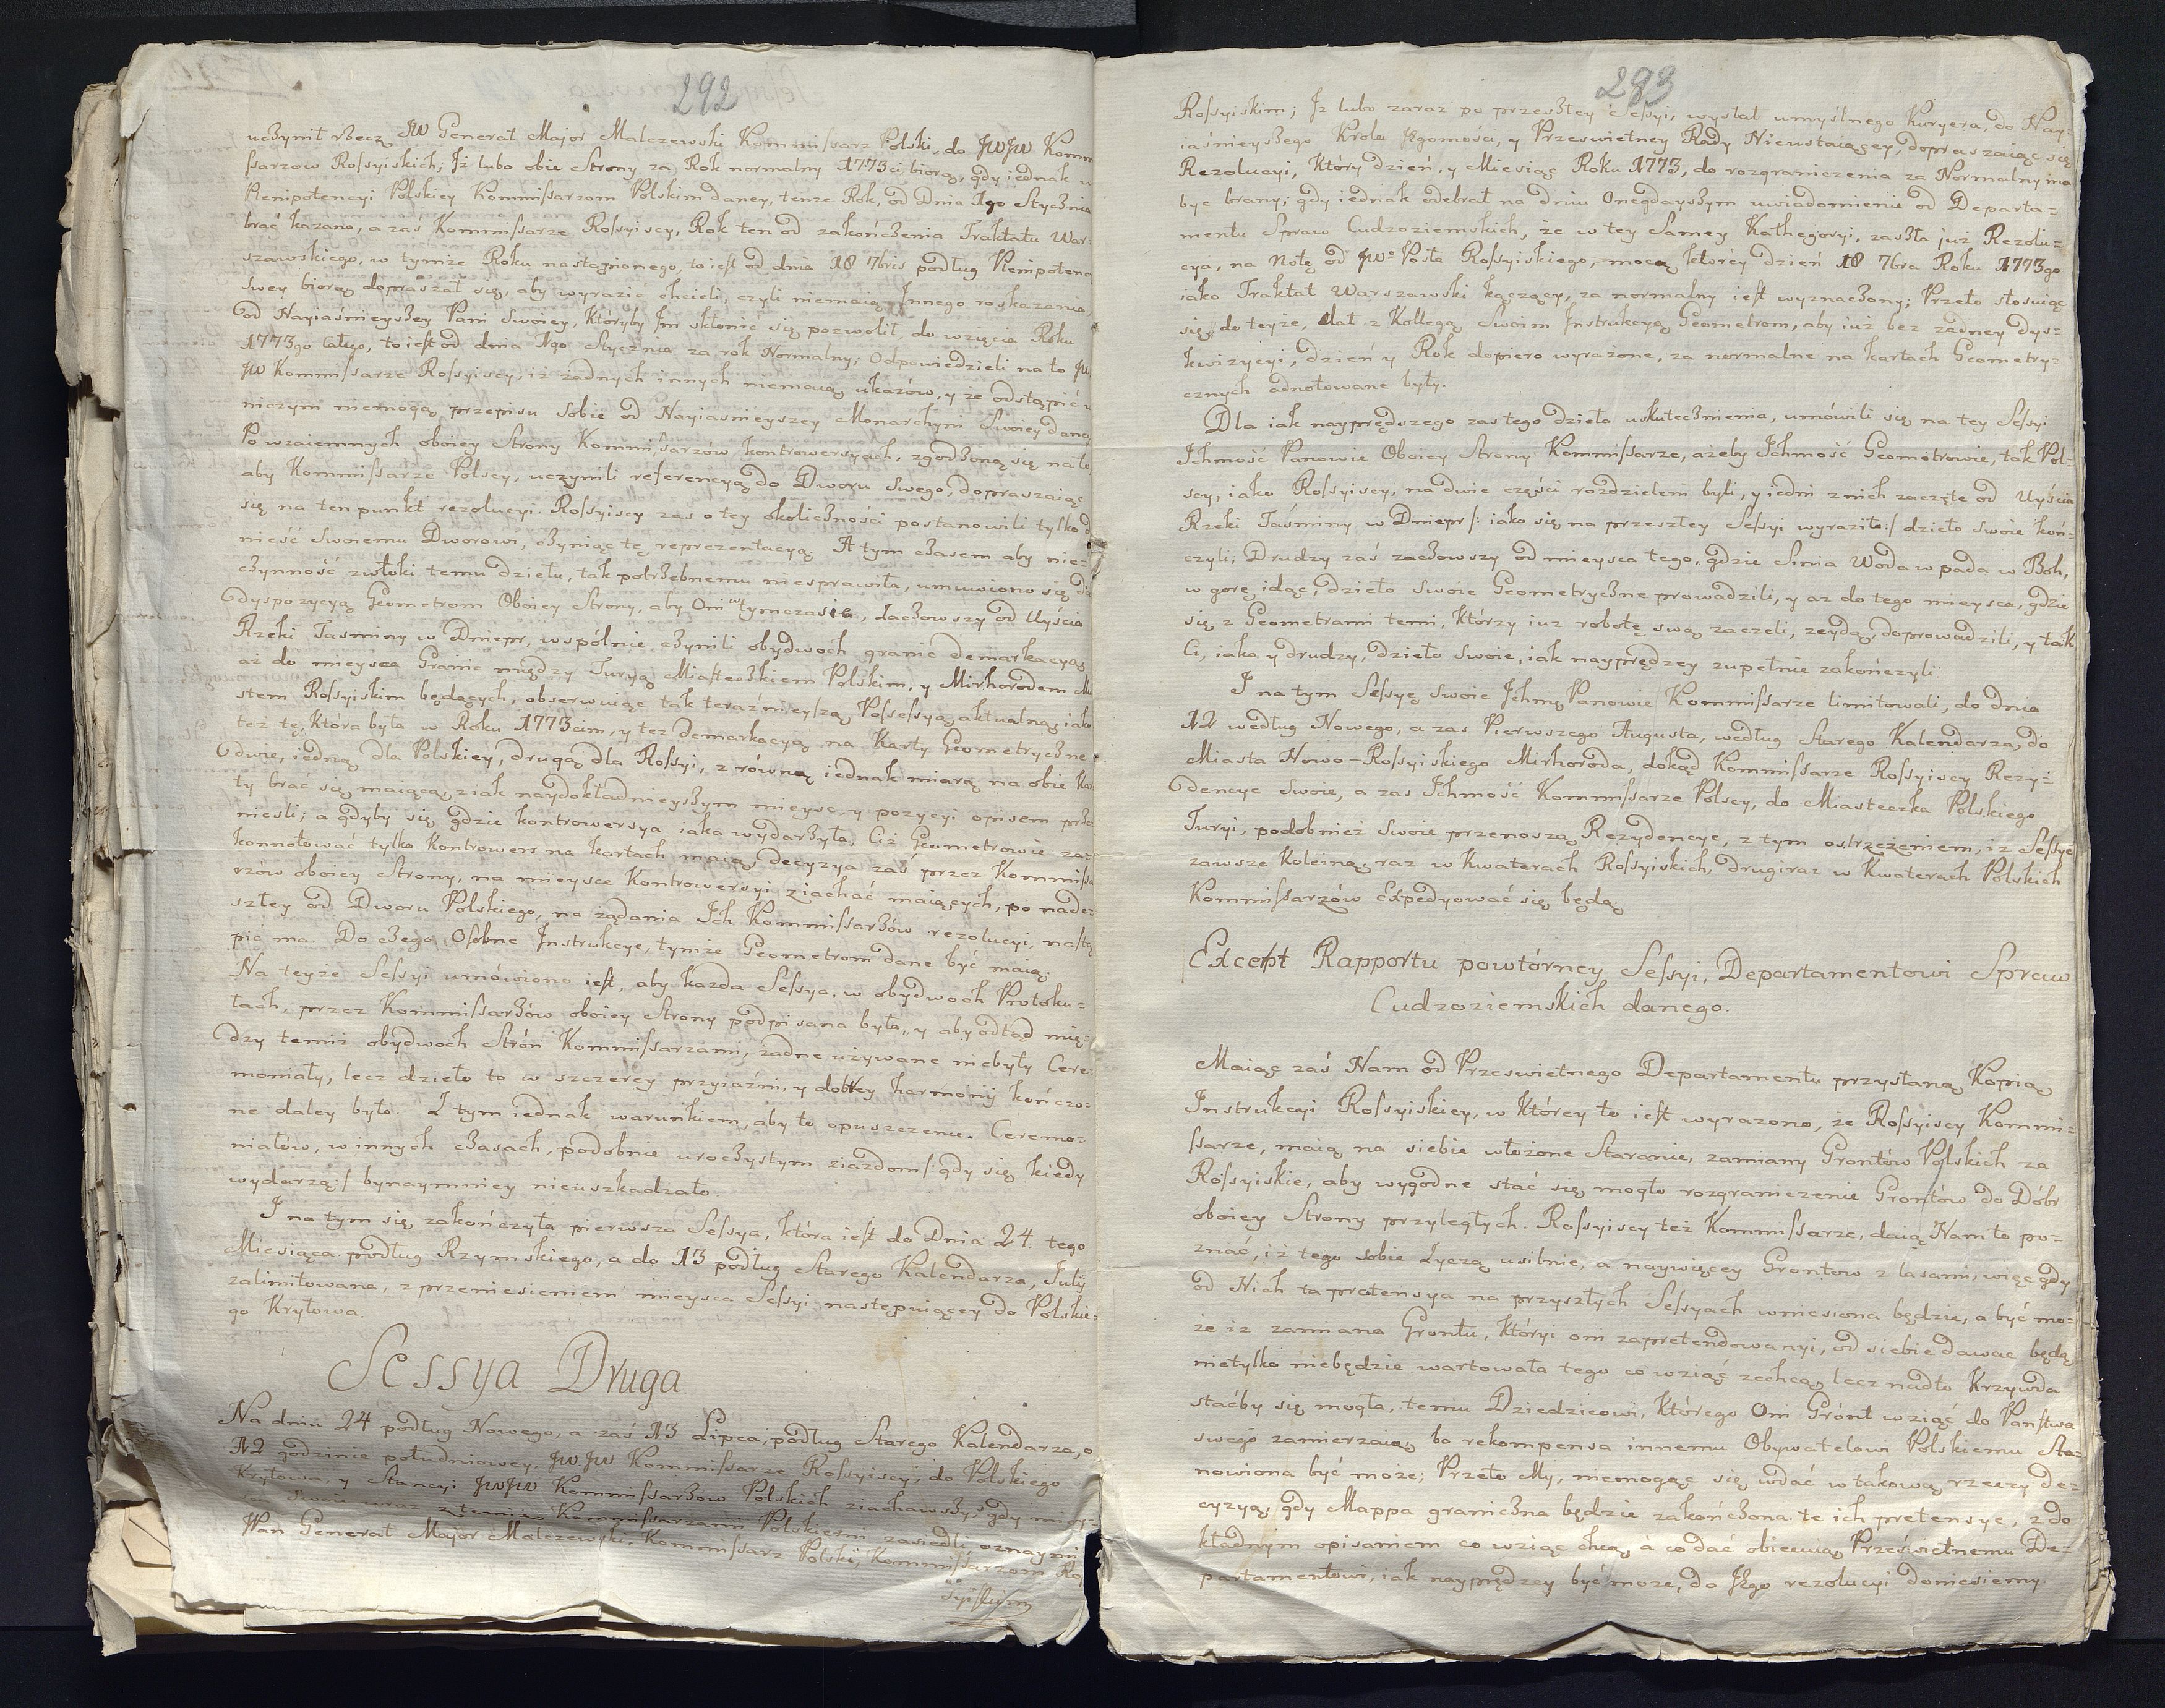 292
uczynił rzecz JW Generał Major Malczewski Kommissarz Polski, do JWJW Komm
ssarzow Rossyiskich; Iż lubo obie Strony za Rok normalny 1773ci biorą, gdy iednak w
Plenipotencyi Polskiey Kommissarzom Polskim daney, tenze Rok, od Dnia 1go Stycznia
brać kazano, a zaś Kommissarze Rossyiscy, Rok ten od zakończenia Traktatu War-
szawskiego, w tymże Roku nastąpionego, to iest od dnia 18 7bris podług Plenipotenc
Swey biorą dopraszał się, aby wyrazić chcieli, czyli niemaią Innego roskazania,
od Nayiaśnieyszey Pani Swoiey, któryby Im skłonić się pozwolił, do wzięcia Roku
1773go całego, to iest od dnia 1go Stycznia za rok Normalny; Odpowiedzieli na to JW
JW Kommissarze Rossyiscy, iż żadnych innych niemaią ukazów, y że odstąpić w
niczym niemogą przepisu Sobie od Nayiasnieyszey Monarchyni Swoiey dane
Po wzaiemnych oboiey Strony Kommissarzów kontrowersyach, zgodzono się na to
aby Kommissarze Polscy, uczynili referencyą do Dworu Swego, dopraszaiąc
się na ten punkt rezolucyi. Rossyiscy zas o tey okoliczności postanowili tylko d
nieść Swoiemu Dworowi, czyniąc tę reprezentacyą. A tym czasem aby nie-
czynność zwłoki temu dziełu, tak potrzebnemu niesprawiła, umuwiono się da
dyspozycyą Geometrom Oboiey Strony, aby Oni w tymczasie, Zacząwszy od Uyścia
Rzeki Tasminy w Dniepr, wspólnie czynili obydwoch granic demarkacyą
aż do mieysca Granic między Turyą Miasteczkiem Polskim, y Mirhorodem Mia
stem Rossyiskim będących, obserwuiąc tak teraźnieyszą Possessyą aktualną, iako
też tę, która była w Roku 1773cim, y tez Demarkacyą na Karty Geometryczne
dwie, iedną dla Polskiey, drugą dla Rossyi, z równą iednak miarą na obie Kar
ty brać się maiącą, z iak naydokładnieyszym mieysc y pozycyi opisem prze-
niesli; a gdyby się gdzie kontrowersya iaka wydarzyła, Ciż Geometrowie za-
konnotować tylko Kontrowers na kartach maią, decyzya zaś przez Kommissa
rzów oboiey Strony, na mieysce Kontrowersyi ziachać maiących, po nade-
szłey od Dworu Polskiego, na żądania Ich Kommissarzów rezolucyi, nastą
pić ma. Do czego Osobne Instrukcye, tymże Geometrom dane być maią.
Na teyże Sessyi umówiono iest, aby każda Sessya, w obydwoch Protoku-
łach, przez Kommissarzów oboiey Strony podpisana była, y aby odtąd mię-
dzy temiż obydwoch Strón Kommissarzami, żadne używane niebyły Cere-
moniały, lecz dzieło to w szczerey przyiaźni, y dobrey harmonij kończo-
ne daley było. Z tym iednak warunkiem, aby to opuszczenie Ceremo-
niałów, w innych czasach, podobnie uroczystym ziazdom /: gdy się kiedy
wydarzą :/ bynaymniey nieuszkadzało.
I na tym się zakończyła pierwsza Sessya, która iest do Dnia 24. tego
Miesiąca podług Rzymskiego, a do 13 podług Starego Kalendarza, Julij
zalimitowana, z przeniesieniem mieysca Sessyi następuiącey do Polskie-
go Kryłowa.
Sessya Druga
Na dniu 24 podług Nowego, a zaś 13 Lipca, podług Starego Kalendarza, o
12 godzinie południowey. JWJW Kommissarze Rossyiscy, do Polskiego
Kryłowa, y Stancyi JWJW Kommissarzów Polskich ziachawszy, gdy miey-
sca Swoie wraz z temiż Kommissarzami Polskiemi zasiedli, oznaymi
Pan Generał Major Malczewski, Kommissarz Polski, Kommissarzom Ros
syiskim
283
Rossyiskim; Iz lubo zaraz po przeszłey Sessyi, wysłał umyślnego Kuryera, do Nay-
iaśnieyszego Krola Jegomości, y Przeswietney Rady Nieustaiącey, dopraszaiąc się
Rezolucyi, Który dzień, y Miesiąc Roku 1773, do rozgraniczenia za Normalny ma
byc brany; gdy iednak odebrał na dniu Onegdayszym uwiadomienie od Departa-
mentu Spraw Cudzoziemskich, że w tey Samey Kathegoryi, zaszła już Rezolu-
cya, na Notę od JWo Posła Rossyiskiego, mocą ktorey dzień 18 7bra Roku 1773go
iako Traktat Warszawski kączący, za normalny iest wyznaczony; Przeto stosuiąc
się do teyże, dał z Kollegą Swoim Instrukcyą Geometrom, aby iuż bez żadney dys-
kwizycyi, dzień y Rok dopiero wyrażone, za normalne na kartach Geometry-
cznych adnotowane były.
Dla iak nayprędszego zas tego dzieła uskutecznienia, umówili się na tey Sessyi
Ichmość Panowie Oboiey Strony Kommissarze, ażeby Ichmość Geometrowie, tak Pol-
scy, iako Rossyiscy, na dwie części rozdzieleni byli, y iedni z nich zaczęte od Uyścia
Rzeki Taśminy w Dniepr /: iako się na przeszłey Sessyi wyraziło :/ dzieło Swoie koń-
czyli; Drudzy zaś zacząwszy od mieysca tego, gdzie Sinia Woda wpada w Boh,
w gorę idąc, dzieło Swoie Geometryczne prowadzili, y az do tego mieysca, gdzie
się z Geometrami temi, Którzy iuz robotę swą zaczeli, zeydą, doprowadzili, y tak
Ci, iako y drudzy, dzieło Swoie, iak nayprędzey zupełnie zakończyli.
I na tym Sessyę Swoie Ichmć Panowie Kommissarze limitowali, do dnia
12 według Nowego, a zas Pierwszego Augusta, według Starego Kalendarza, do
Miasta Nowo-Rossyiskiego Mirhoroda, dokąd Kommissarze Rossyiscy Rezy-
dencye Swoie, a zas Ichmość Kommissarze Polscy, do Miasteczka Polskiego
Turyi, podobnież Swoie przenoszą Rezydencye, z tym ostrzeżeniem, iz Sessye
zawsze Koleiną, raz w Kwaterach Rossyiskich, drugi raz w Kwaterach Polskich
Kommissarzów Expedyować się będą.
Excerpt Rapportu powtórney Sessyi, Departamentowi Spraw
Cudzoziemskich danego.
Maiąc zaś Nam od Przeswietnego Departamentu przysłaną Kopią
Instrukcyi Rossyiskiey, w Którey to iest wyrazono, że Rossyiscy Kommi-
ssarze, maią na siebie włożone Staranie, zamiany Grontów Polskich za
Rossyiskie, aby wygodne stać się mogło rozgraniczenie Grontów do Dóbr
oboiey Strony przyległych. Rossyiscy też Kommissarze, daią Nam to po-
znać, iż tego sobie Życzą usilnie, a naywięcey Grontow z lasami, więc gdy
od Nich ta pretensya na przyszłych Sessyach wniesiona będzie, a być mo-
że iz zamiana Grontu, Któryi oni zapretendowanyi, od siebie dawac będą
nietylko niebędzie wartowała tego co wziąć zechcą, lecz nadto Krzywda
staćby się mogła, temu Dziedzicowi, Którego Oni Grónt wziąć do Państwa
swego zamierzaią, bo rekompensa innemu Obywatelowi Polskiemu Sta-
nowiona być może; Przeto My, niemogąc się wdać w takową rzeczy de-
cyzyą, gdy Mappa graniczna będzie zakończona, te ich pretensye, z do
kładnym opisaniem co wziąć chcą, à co dać obiecuią, Prześwietnemu De-
partamentowi, iak nayprędzey być moze, do Jego rezolucyi doniesiemy.